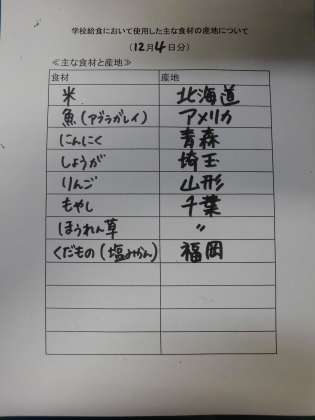 学校給食において使用した主な食材の産地について
(12月4日分)
≪主な食材と産地≫
食材 産地
米 北海道
魚(アブラガレイ) アメリカ
にんにく 青森
しょうが 埼玉
りんご 山形
もやし 千葉
ほうれん草 〃
くだもの(塩みかん) 福岡